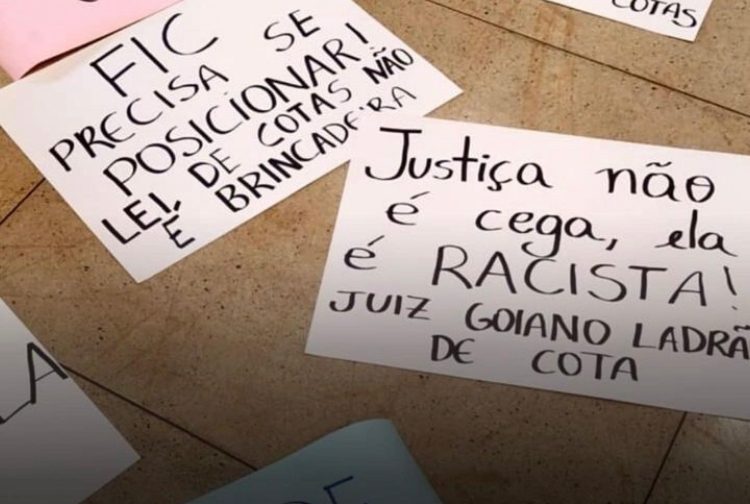 COTAS
FIC
PRECISA SE
POSICIONAR!
LEI DE COTAS NÃO
É BRINCADEIRA
Justiça não
é cega, ela
é RACISTA!
JUIZ GOIANO LADRÃ
DE COTA
LA
DE